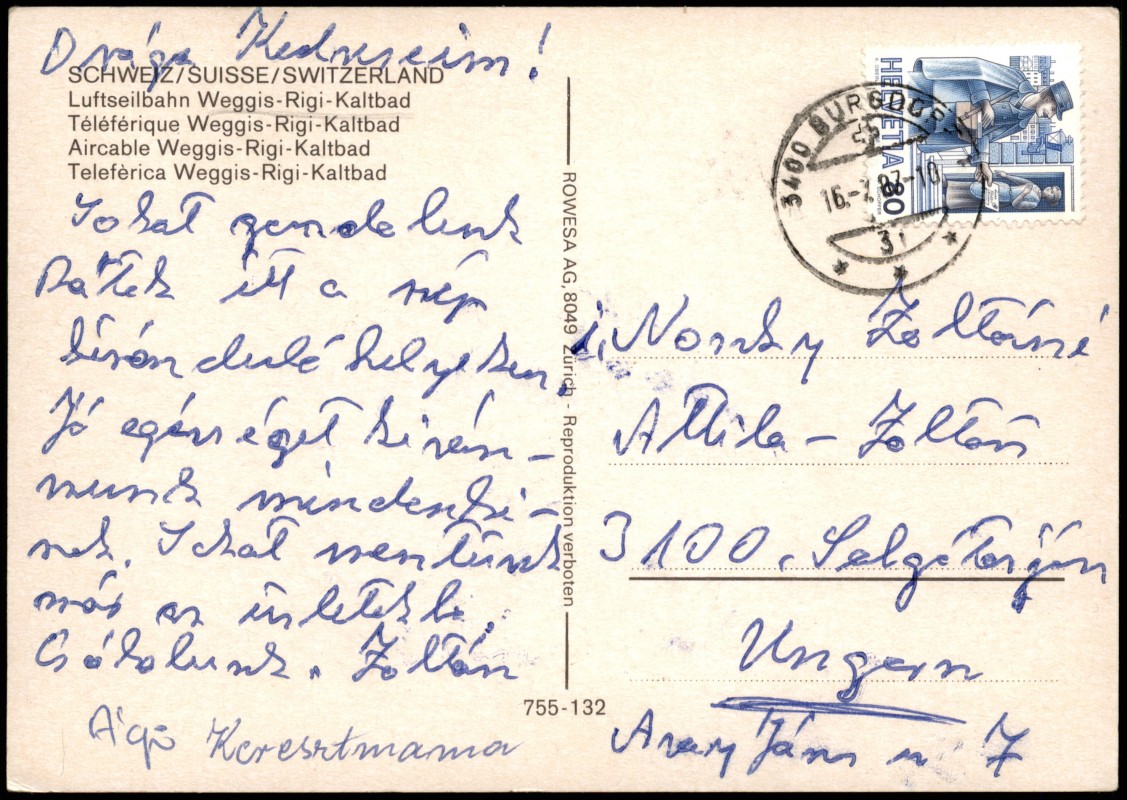 Drága Kedveseim!
SCHWEIZ/SUISSE/SWITZERLAND
Luftseilbahn Weggis-Rigi-Kaltbad
Téléférique Weggis-Rigi-Kaltbad
Aircable Weggis-Rigi-Kaltbad
Teleferica Weggis-Rigi-Kaltbad
Sokat gondolunk
Rátok itt a szép
kiránduló helyeken.
Jó egészséget kíván-
nunk mindenki-
nek. Sokat mentünk
már az üzletekbe.
Csókolunk. Zoltán
Ági Keresztmama
ROWESA AG, 8049 Zürich - Reproduktion verboten
755-132
HELVETIA
3400 BURGDORF
16.-7.87-10
31
Zoltánné
Attila – Zoltán
3100. Salgótarján
Ungarn
Arany János u 7